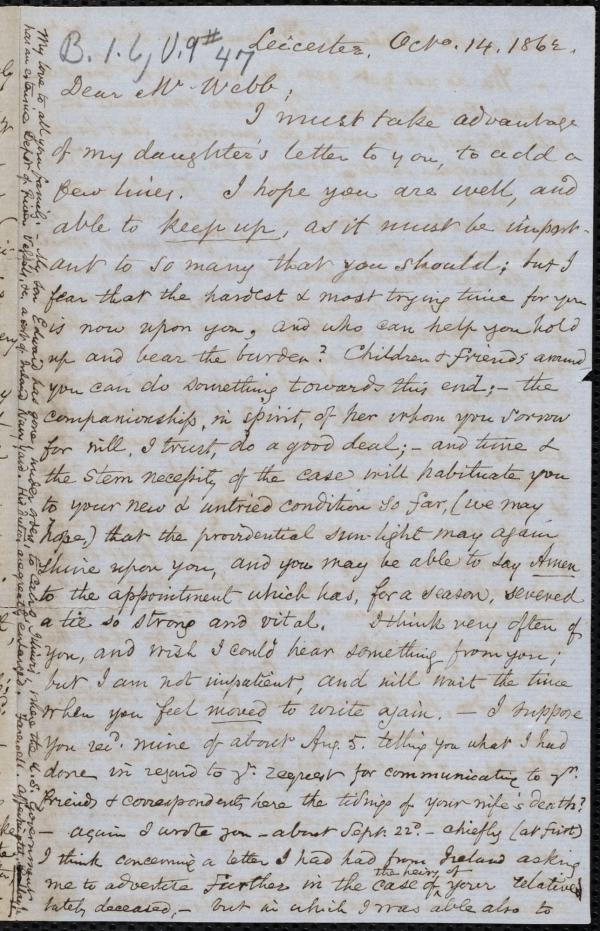 B.1.6, V.9#
47
Leicester, Octo. 14. 1862.
Dear Mr Webb;
I must take advantage
of my daughter's letter to you, to add a
few lines. I hope you are well, and
able to keep up, as it must be import-
ant to so many that you should; but I
fear that the hardest & most trying time for you
is now upon you, and who can help you hold
up and bear the burden? Children & friends around
you can do something towards this end; – the
companionship, in spirit, of her whom you sorrow
for will, I trust, do a good deal; – and time &
the stern necessity of the case will habituate you
to your new & untried condition so far, (we may
hope,) that the providential sun-light may again
shine upon you, and you may be able to say Amen
to the appointment which has, for a season, severed
a tie so strong and vital. I think very often of
you, and wish I could hear something from you;
but I am not impatient, and will wait the time
when you feel moved to write again. – I suppose
you recd. mine of about Aug. 5. telling you what I had
done in regard to yr. request for communicating to yr.
friends & correspondents here the tidings of your wife's death?
– again I wrote you – about Sept. 22d. – chiefly (at first)
I think concerning a letter I had had from Ireland asking
me to advertise further in the case of your relatives
the heirs of
lately deceased, – but in which I was able also to
My love to all your family. My son Edward has gone, under orders to Cairo, Illinois, where the U.S. Government
has an extensive Depot of River Vessels, &c., a sort of Inland Navy Yard. His duties are greatly enlarged. Farewell. Affectionately